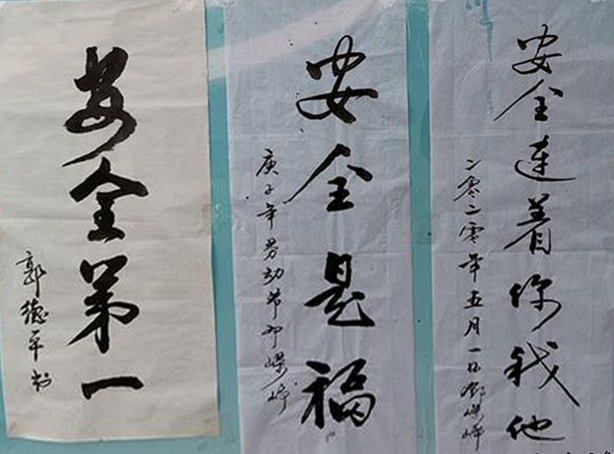 安全第一
郭德平书
安全是福
庚子年劳动节
安全连着你我他
二零二零年五月一日